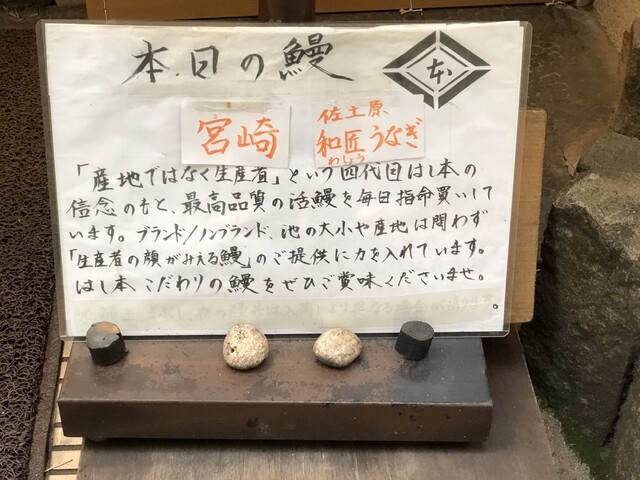 本日の鰻
本
宮崎
佐土原
和匠うなぎ
わしょう
「産地ではなく生産者」という四代目はし本の
信念のもと、最高品質の活鰻を毎日指命買いして
います。ブランド/ノンブランド、池の大小や産地は問わず
「生産者の顔がみえる鰻」のご提供に力を入れています。
はし本こだわりの鰻をぜひご賞味くださいませ。